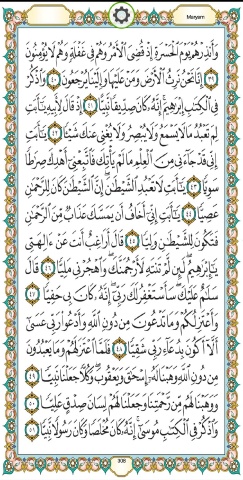 Maryam
وَأَنذِرْهُمْ يَوْمَ ٱلْحَسْرَةِ إِذْ قُضِىَ ٱلْأَمْرُ وَهُمْ فِى غَفْلَةٍ وَهُمْ لَا يُؤْمِنُونَ
٣٩ إِنَّا نَحْنُ نَرِثُ ٱلْأَرْضَ وَمَنْ عَلَيْهَا وَإِلَيْنَا يُرْجَعُونَ ٤٠ وَٱذْكُرْ
فِى ٱلْكِتَٰبِ إِبْرَٰهِيمَ إِنَّهُۥ كَانَ صِدِّيقًا نَّبِيًّا ٤١ إِذْ قَالَ لِأَبِيهِ يَٰٓأَبَتِ
لِمَ تَعْبُدُ مَا لَا يَسْمَعُ وَلَا يُبْصِرُ وَلَا يُغْنِى عَنكَ شَيْـًٔا ٤٢ يَٰٓأَبَتِ
إِنِّى قَدْ جَآءَنِى مِنَ ٱلْعِلْمِ مَا لَمْ يَأْتِكَ فَٱتَّبِعْنِىٓ أَهْدِكَ صِرَٰطًا
سَوِيًّا ٤٣ يَٰٓأَبَتِ لَا تَعْبُدِ ٱلشَّيْطَٰنَ إِنَّ ٱلشَّيْطَٰنَ كَانَ لِلرَّحْمَٰنِ
عَصِيًّا ٤٤ يَٰٓأَبَتِ إِنِّىٓ أَخَافُ أَن يَمَسَّكَ عَذَابٌ مِّنَ ٱلرَّحْمَٰنِ
فَتَكُونَ لِلشَّيْطَٰنِ وَلِيًّا ٤٥ قَالَ أَرَاغِبٌ أَنتَ عَنْ ءَالِهَتِى
يَٰٓإِبْرَٰهِيمُ لَئِن لَّمْ تَنتَهِ لَأَرْجُمَنَّكَ وَٱهْجُرْنِى مَلِيًّا ٤٦ قَالَ
سَلَٰمٌ عَلَيْكَ سَأَسْتَغْفِرُ لَكَ رَبِّىٓ إِنَّهُۥ كَانَ بِى حَفِيًّا ٤٧
وَأَعْتَزِلُكُمْ وَمَا تَدْعُونَ مِن دُونِ ٱللَّهِ وَأَدْعُوا۟ رَبِّى عَسَىٰٓ
أَلَّآ أَكُونَ بِدُعَآءِ رَبِّى شَقِيًّا ٤٨ فَلَمَّا ٱعْتَزَلَهُمْ وَمَا يَعْبُدُونَ
مِن دُونِ ٱللَّهِ وَهَبْنَا لَهُۥٓ إِسْحَٰقَ وَيَعْقُوبَ وَكُلًّا جَعَلْنَا نَبِيًّا
٤٩ وَوَهَبْنَا لَهُم مِّن رَّحْمَتِنَا وَجَعَلْنَا لَهُمْ لِسَانَ صِدْقٍ عَلِيًّا
٥٠ وَٱذْكُرْ فِى ٱلْكِتَٰبِ مُوسَىٰٓ إِنَّهُۥ كَانَ مُخْلَصًا وَكَانَ رَسُولًا نَّبِيًّا ٥١
308